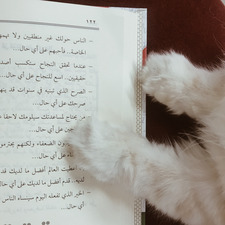 ١٢٢
– الناس حولك غير منطقيين ولا
الخاصة.. فأحبهم على أي حال...
– عندما تحقق النجاح ستكسب
حقيقيين.. اصنع النجاح على أي حال...
– الصرح الذي تبنيه في سنوات قد
صرحك على أي حال...
يحتاج لمساعدتك سيلومك لاحقا
على أي حال...
الضعفاء ولكنهم
على أي حال...
العالم أفضل ما لديك
لديه.. قدم أفضل ما لديك على أي حال...
– الخير الذي تفعله اليوم سينساه الناس
أي حال...